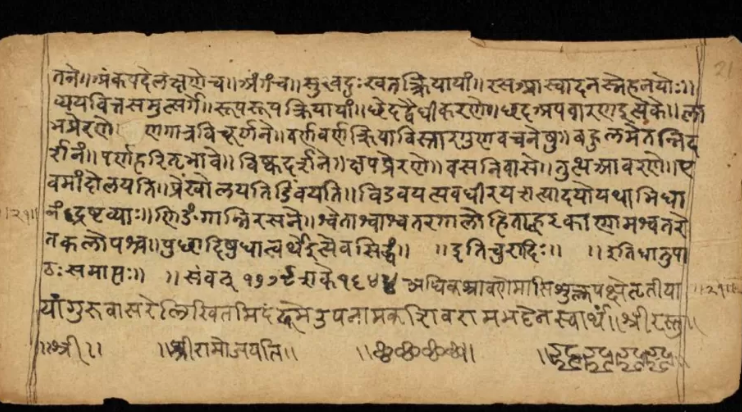 तने॥ अंक पदे लक्षणे च॥ अंगं च॥ सुख दुःख तत्क्रियायां॥ रस आस्वादनस्नेहनयोः॥
व्यय वित्तसमुत्सर्गे॥ रूप रूपक्रियायां॥ छेद द्वैधीकरणे॥ छद अपवारण इत्येके॥ ला
भ प्रेरणे॥ व्रण गात्रविचूर्णने॥ वर्ण वर्णक्रियाविस्तारगुणवचनेषु॥ बहुलमेतन्निद
र्शनं॥ पर्ण हरितभावे॥ विष्क दर्शने॥ क्षप प्रेरणे॥ वस निवासे॥ तुत्थ आवरणे॥ ए
वमांदोलयति॥ प्रेंखोलयति विडंबयति॥ अवधीरय इत्यादयो यथाभिधा
नं द्रष्टव्याः॥ णिङंगान्निरसने॥ श्वेताश्वाश्वतरगालोडिताह्वरकाणामश्वतरे
तकलोपश्च॥ पुच्छादिषु धात्वर्थ इत्येव सिद्धं॥ ॥ इति चुरादिः॥ ॥ इति धातुपा
ठः समाप्तः॥ ॥ संवत् १७७९ शके १६४४ अधिकश्रावणेमासि शुक्लपक्षे तृतीया
यां गुरुवासरे लिखितमिदं उपनामक शिवरामभट्टेन स्वार्थं॥ श्रीरस्तु॥
॥ श्री॥ ॥ श्रीरामो जयति॥
२१